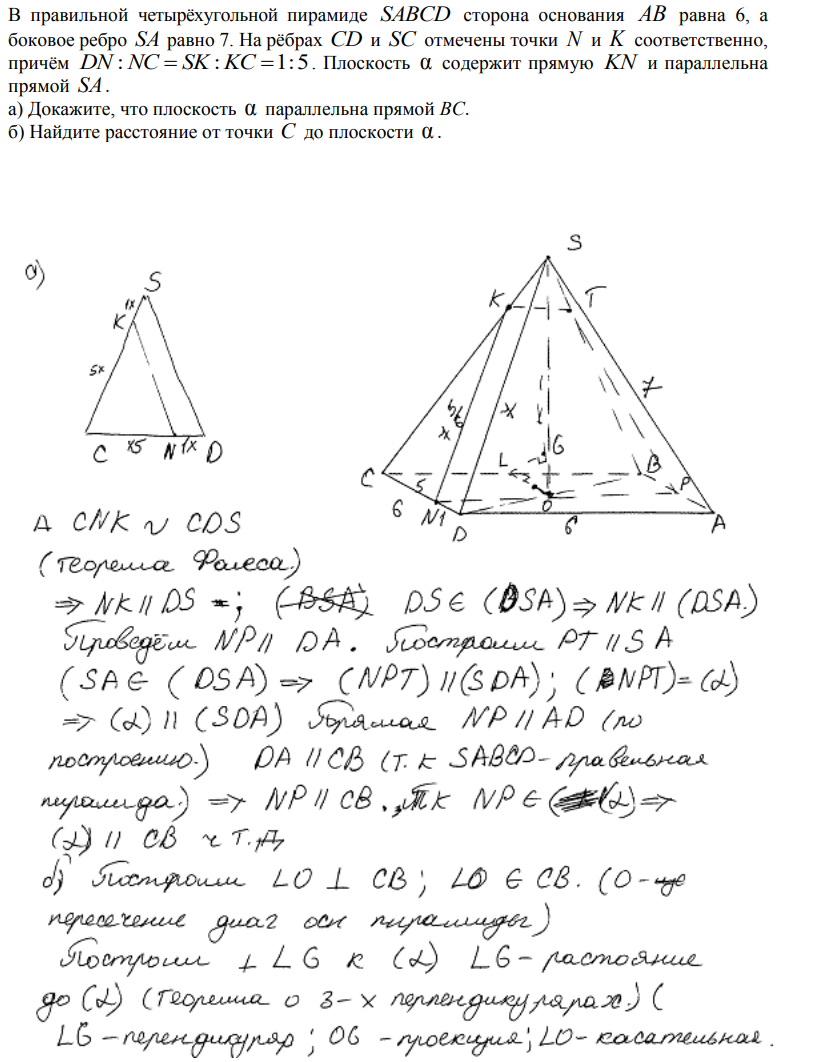 В правильной четырёхугольной пирамиде SABCD сторона основания AB равна 6, а
боковое ребро SA равно 7. На рёбрах CD и SC отмечены точки N и K соответственно,
причём DN : NC = SK : KC = 1 : 5. Плоскость α содержит прямую KN и параллельна
прямой SA.
а) Докажите, что плоскость α параллельна прямой BC.
б) Найдите расстояние от точки C до плоскости α.
а)
S
1x
K
5x
C x5 N 1x D
S
K T
7
5/6
x x
L G B
C 5 P
6 N 1 D O 6 A
Δ CNK ∾ CDS
(теорема Фалеса.)
⇒ NK || DS ; (BSA) DS ∈ (DSA) ⇒ NK || (DSA.)
Проведём NP || DA. Построим PT || SA
(SA ∈ (DSA) ⇒ (NPT) || (SDA); (NPT) = (α)
⇒ (α) || (SDA) Прямая NP || AD (по
построению.) DA || CB (т.к SABCD - правельная
пирамида.) ⇒ NP || CB. , Тк NP ∈ (α) ⇒
(α) || CB ч т.д
б) Построим LO ⊥ CB ; LO ∈ CB. (O -
пересечение диаг осн пирамиды)
Построим ⊥ LG к (α) LG - растояние
до (α) (Теорема о 3-х перпендикулярах.) (
LG - перендикуляр ; OG - проекция ; LO - касательная.